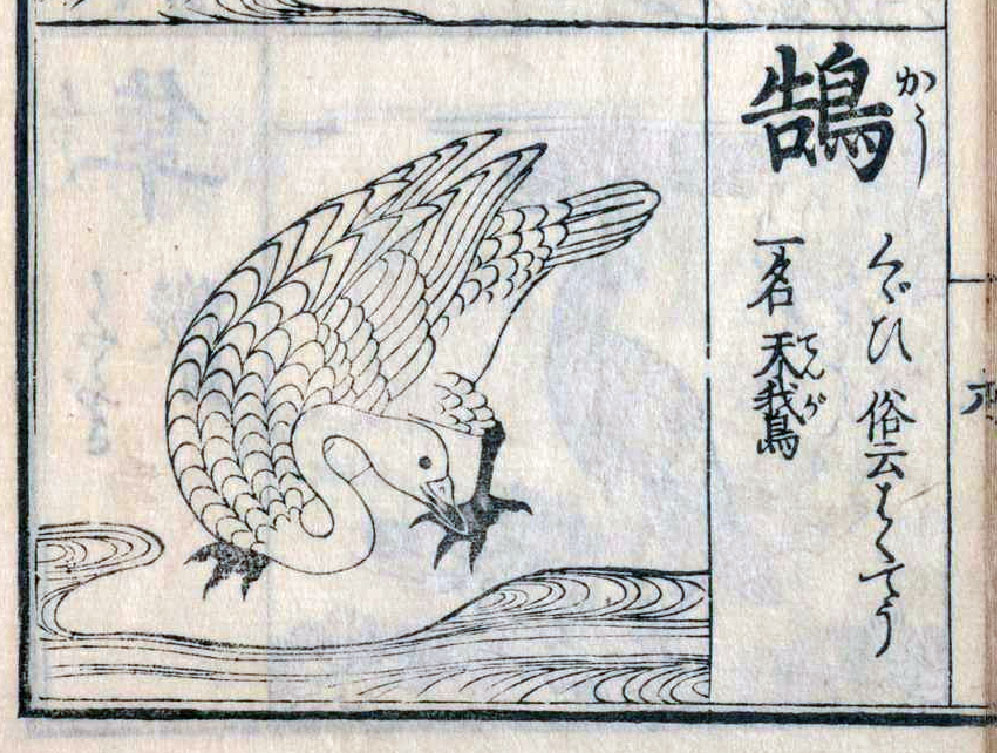 鵠
かう
くゞひ 俗云はくてう
一名 天鵞
てんが